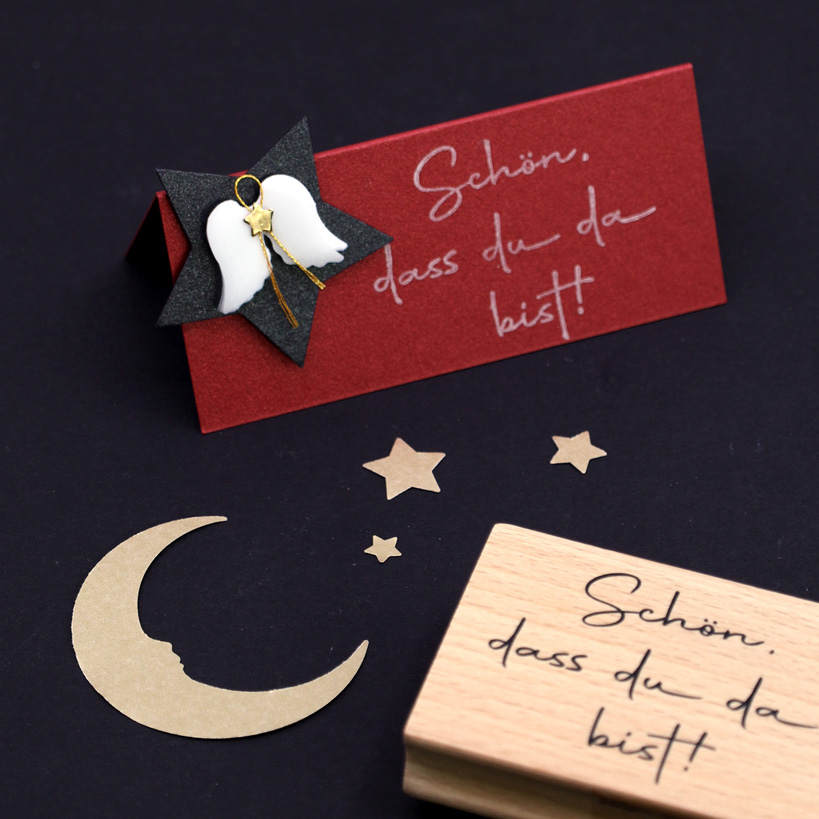 Schön,
dass du da
bist!
Schön,
dass du da
bist!